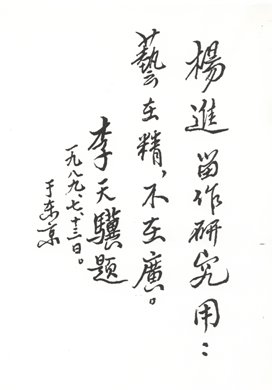 楊進留作研究用：
藝在精，不在廣。
李天驥題
一九八九、七、十三日。
于东京